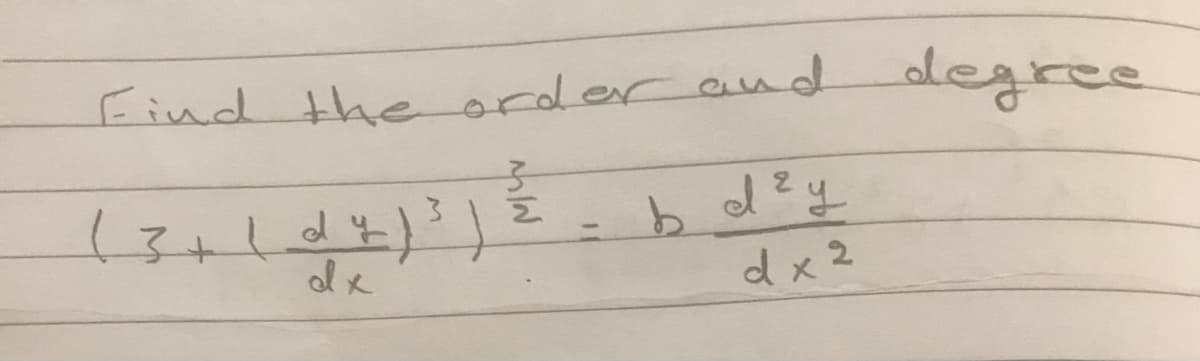 Find the order and degree
(3+(dy/dx)³)^(3/2) = b d²y/dx²